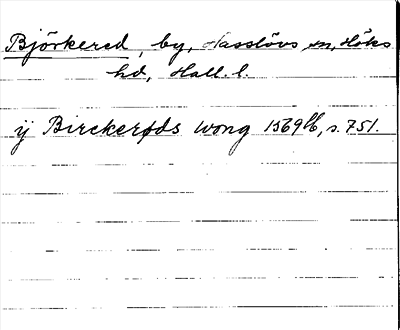 Björkered, by, Hasslövs sn, Höks
hd, Hall. l.
ij Birckerøds wong 1569 lb, s. 751.